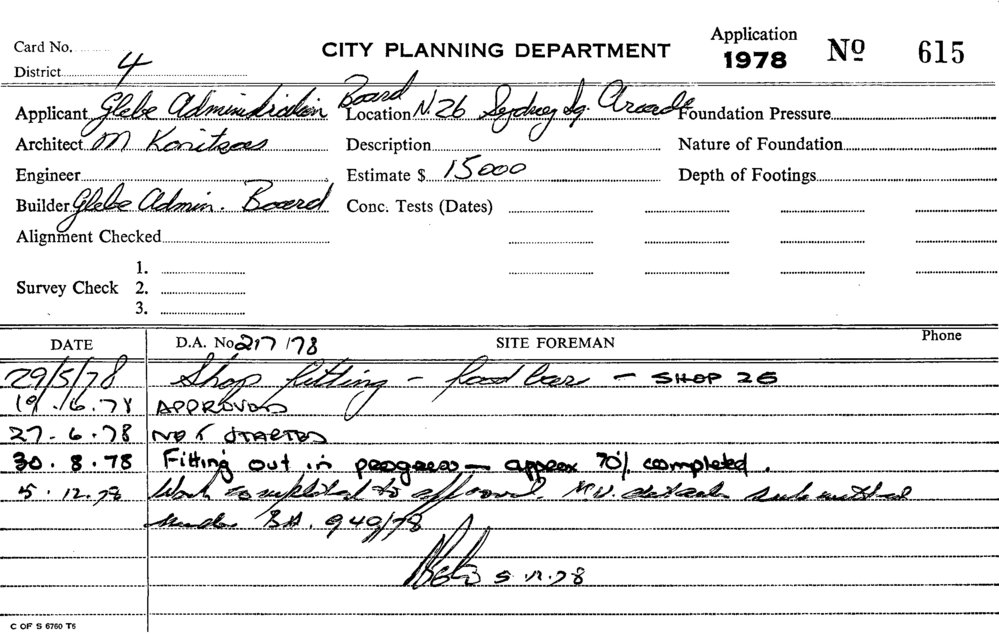 Card No. CITY PLANNING DEPARTMENT Application 1978 Nº 615
District 4
Applicant Glebe Administration Board Location N. 26 Sydney Sq. Arcade Foundation Pressure
Architect M Description Nature of Foundation
Engineer Estimate $ 15000 Depth of Footings
Builder Glebe Admin. Board Conc. Tests (Dates)
Alignment Checked
1.
Survey Check 2.
3.
DATE D.A. No 217/78 SITE FOREMAN Phone
29/5/78 Shop fitting - food bar - SHOP 26
19.6.78 APPROVED
27.6.78 NOT STARTED
30.8.78 Fitting out in progress - approx 70% completed.
5.12.78 Work completed to approval. M.V. details submitted
under BA. 940/78
5.12.78
C OF S 6760 T5